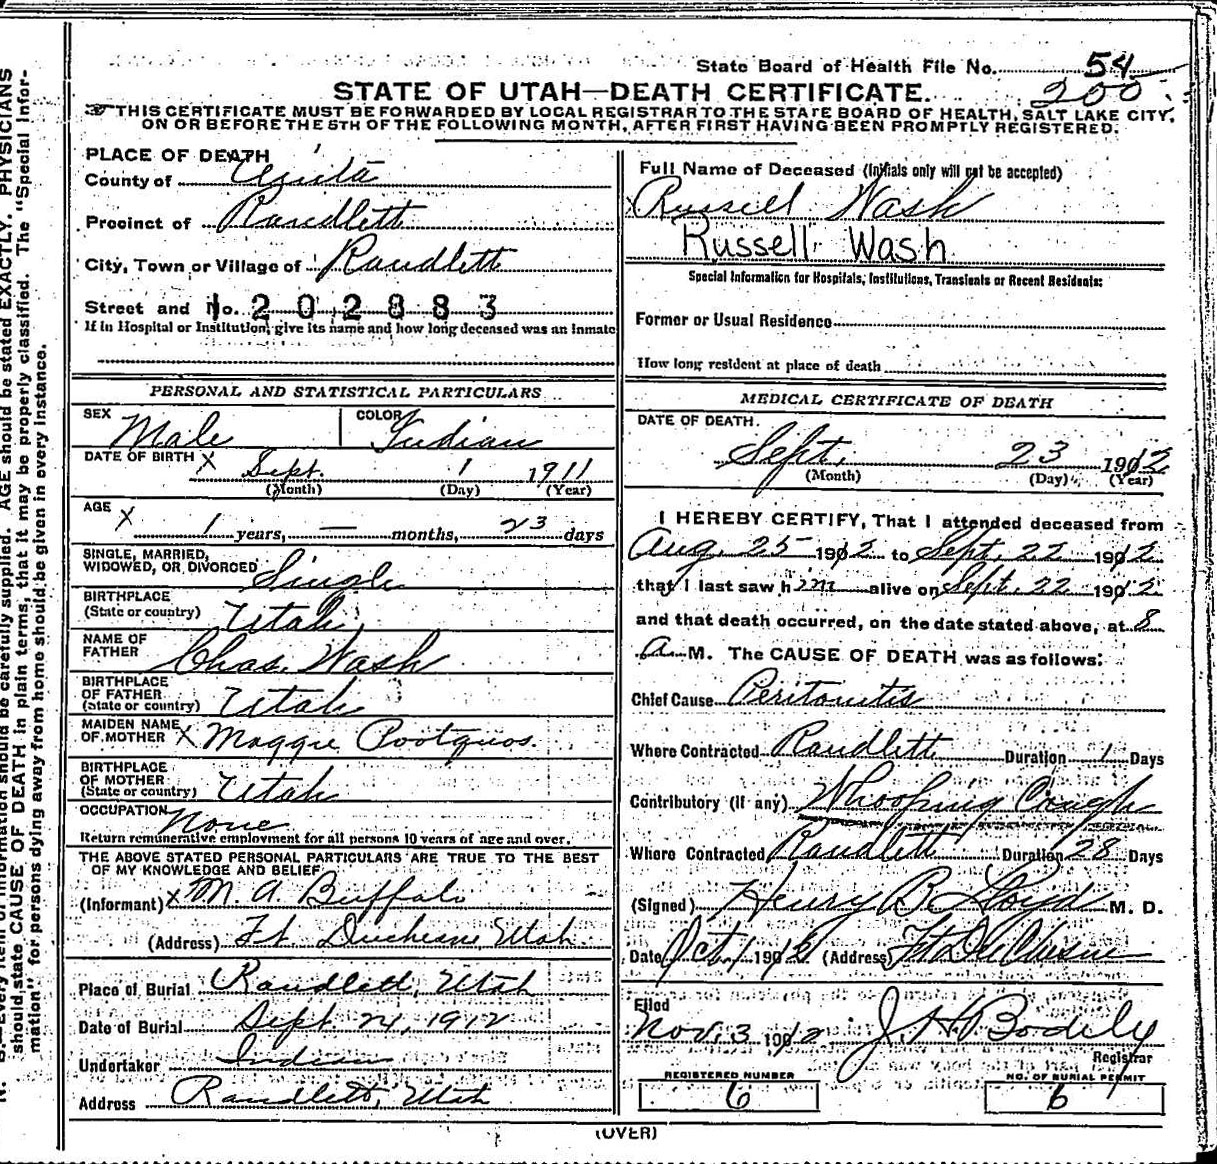 State Board of Health File No. 54
200
STATE OF UTAH—DEATH CERTIFICATE.
THIS CERTIFICATE MUST BE FORWARDED BY LOCAL REGISTRAR TO THE STATE BOARD OF HEALTH, SALT LAKE CITY,
ON OR BEFORE THE 5TH OF THE FOLLOWING MONTH, AFTER FIRST HAVING BEEN PROMPTLY REGISTERED.
PLACE OF DEATH
County of Uinta
Precinct of Randlett
City, Town or Village of Randlett
Street and No. 1202883
If in Hospital or Institution, give its name and how long deceased was an inmate
PERSONAL AND STATISTICAL PARTICULARS
SEX Male COLOR Indian
DATE OF BIRTH x Sept. 1 1911
(Month) (Day) (Year)
AGE x 1 years, — months, 23 days
SINGLE, MARRIED,
WIDOWED, OR DIVORCED Single
BIRTHPLACE
(State or country) Utah
NAME OF
FATHER Chas. Wash
BIRTHPLACE
OF FATHER
(State or country) Utah
MAIDEN NAME
OF MOTHER x Maggie Pootquos.
BIRTHPLACE
OF MOTHER
(State or country) Utah
OCCUPATION None
Return remunerative employment for all persons 10 years of age and over.
THE ABOVE STATED PERSONAL PARTICULARS ARE TRUE TO THE BEST
OF MY KNOWLEDGE AND BELIEF
(Informant) x M. A. Buffalo
(Address) Ft Duchesne, Utah
Place of Burial Randlett, Utah
Date of Burial Sept 24, 1912
Undertaker Indian
Address Randlett, Utah
Full Name of Deceased (Initials only will not be accepted)
x Russell Wash
Russell Wash
Special Information for Hospitals, Institutions, Transients or Recent Residents:
Former or Usual Residence
How long resident at place of death
MEDICAL CERTIFICATE OF DEATH
DATE OF DEATH.
Sept. 23 1912
(Month) (Day) (Year)
I HEREBY CERTIFY, That I attended deceased from
Aug. 25 1912 to Sept. 22 1912
that I last saw him alive on Sept. 22 1912.
and that death occurred, on the date stated above, at 8
a. M. The CAUSE OF DEATH was as follows:
Chief Cause Peritonitis
Where Contracted Randlett Duration 1 Days
Contributory (if any) Whooping Cough
Where Contracted Randlett Duration 28 Days
(Signed) Henry B. Lloyd M. D.
Date Oct 1 1912 (Address) Ft Du Chesne
Filed
Nov. 3 1912 J. H. Bodily
Registrar
REGISTERED NUMBER
6
NO. OF BURIAL PERMIT
6
(OVER)
should state CAUSE OF DEATH in plain terms, that it may be properly classified. The "Special Infor-
mation" for persons dying away from home should be given in every instance.